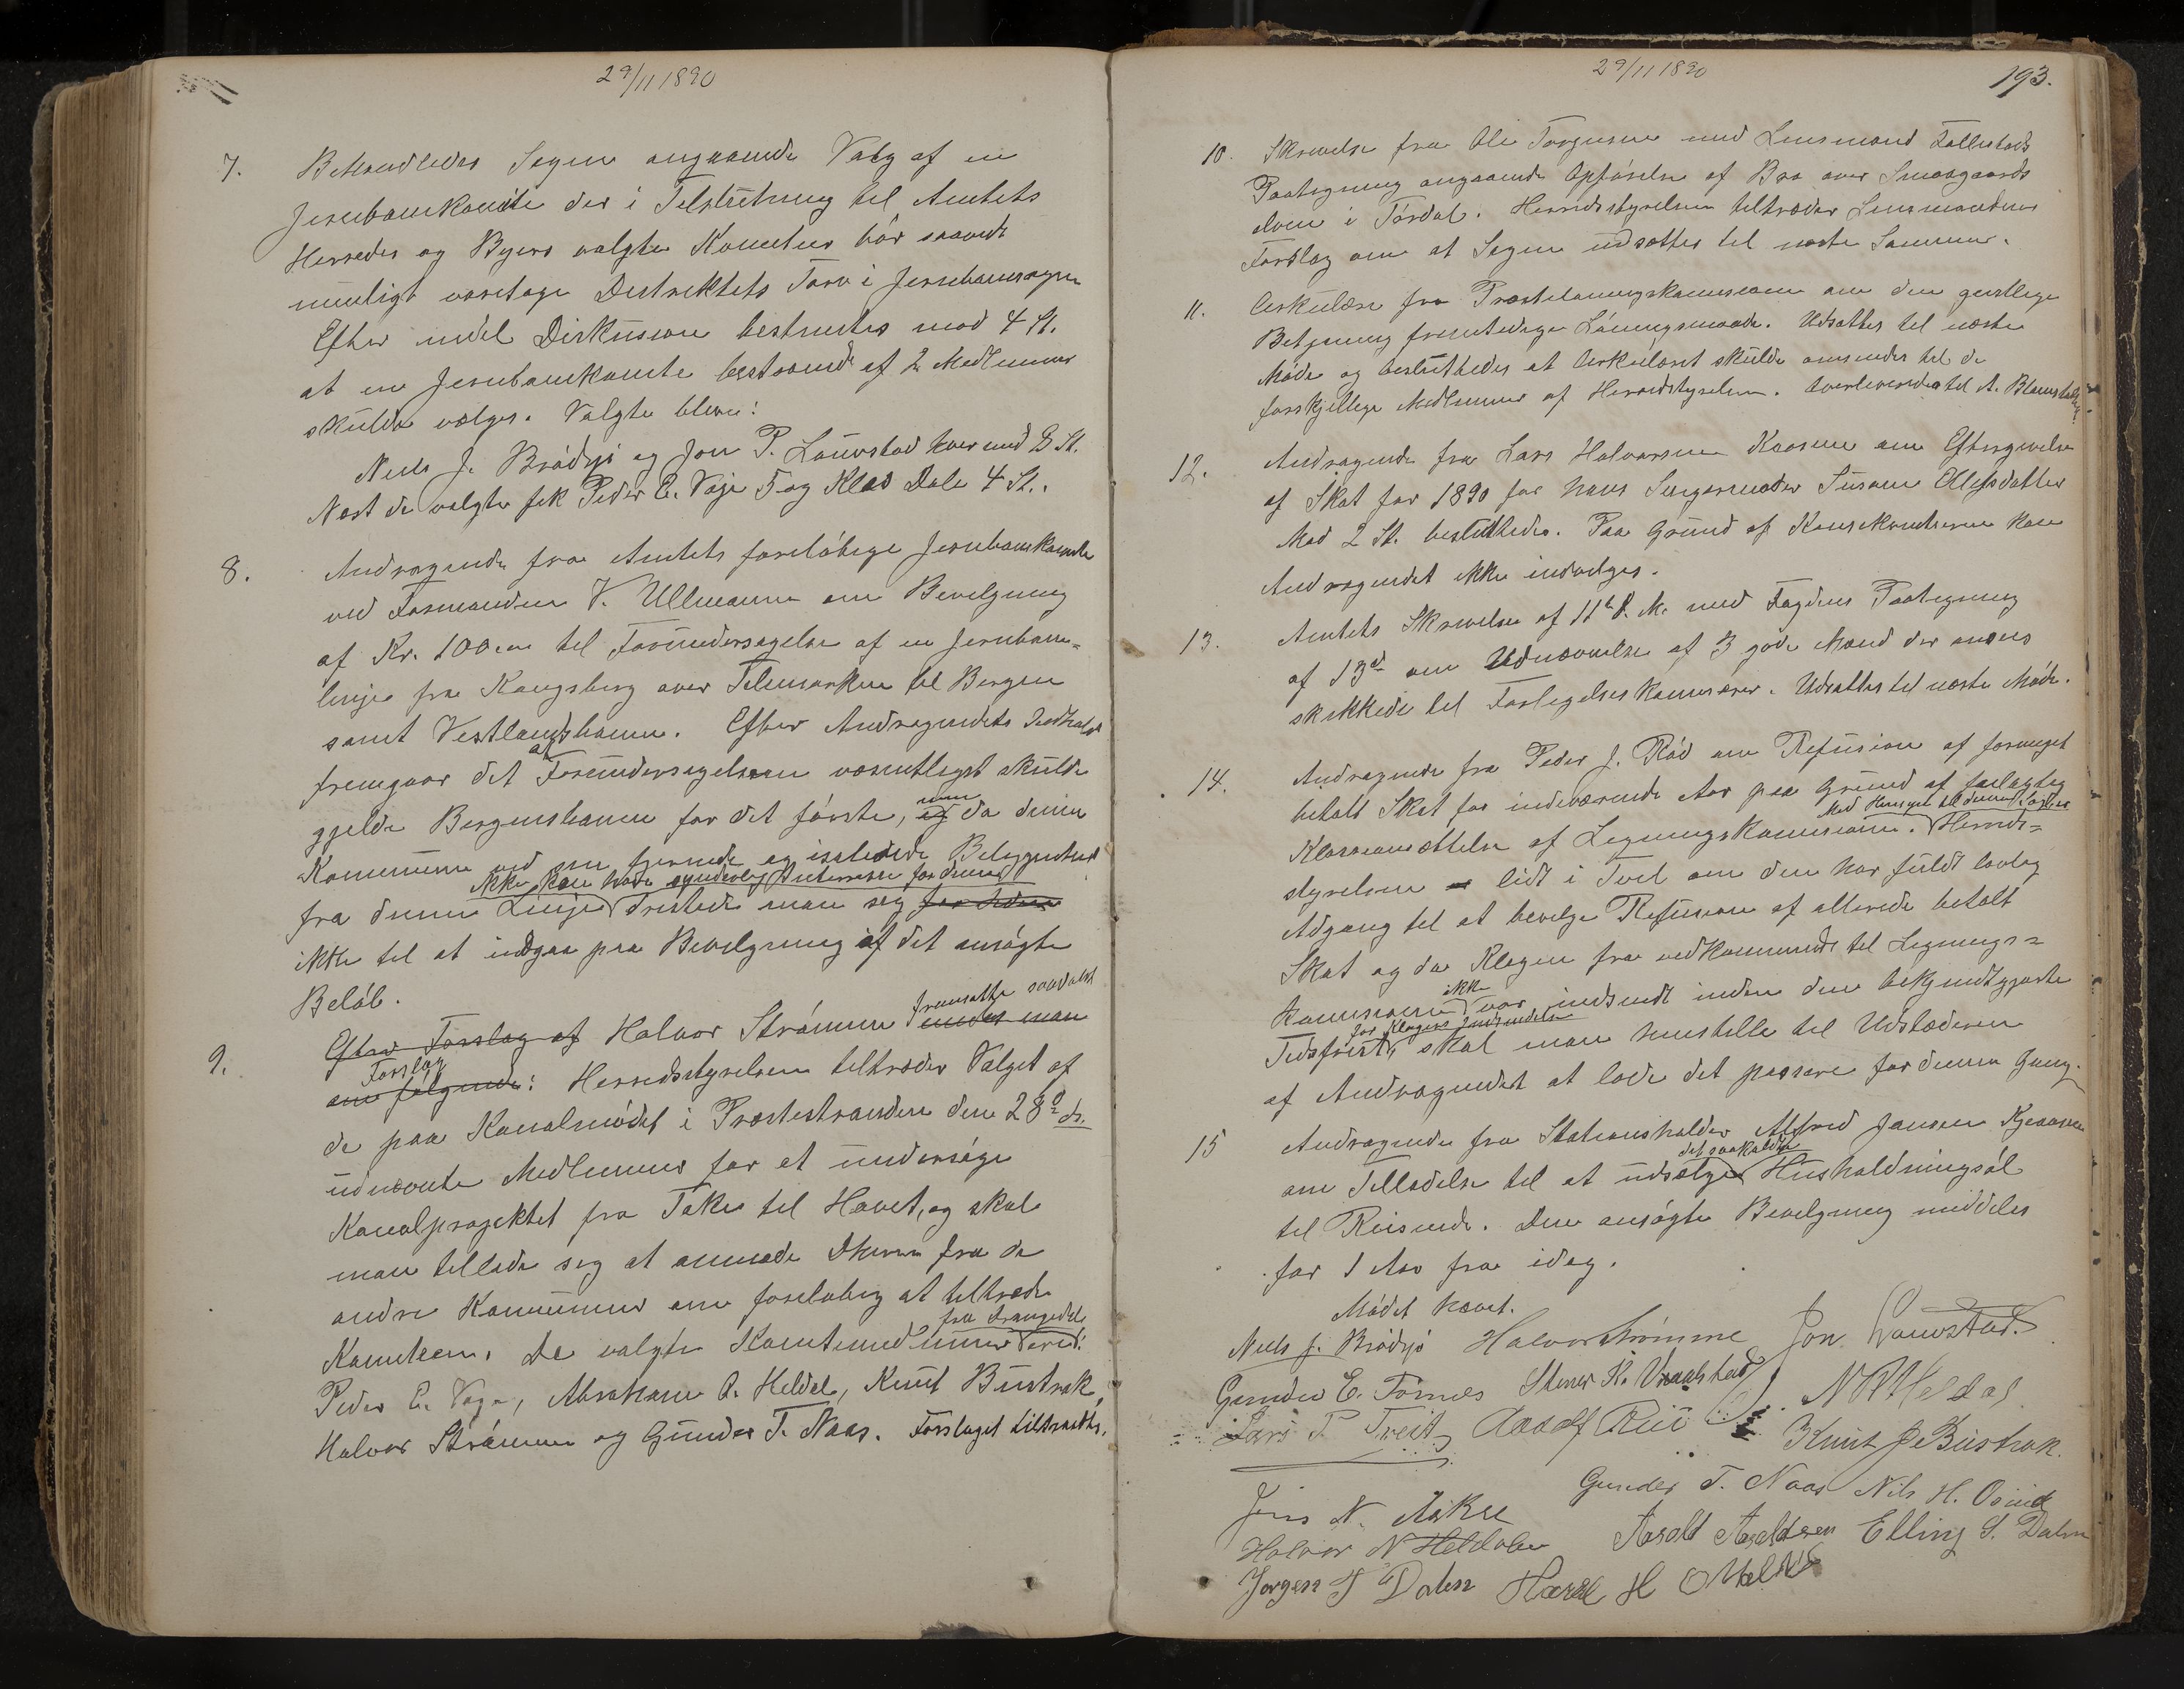 29/11 1890
7. Behandledes Sagen angaaende Valg af en
Jernbanekomite der i Tilslutning til Amtets
Herreder og Byers valgte Komiteer bör saavidt
muligt varetage Distriktets Tarv i Jernbanesagen
Efter endel Diskusion bestemtes mod 4 St.
at en Jernbanekomite bestaaende af 2 Medlemmer
skulde vælges. Valgte blev:
Niels J. Brödsjö og Jon P. Lauvstad hver med 8 St.
Næst de valgte fik Peder E. Voje 5 og Klas Dale 4 St.
8. Andragende fra Amtets foreløbige Jernbanekomite
ved Formanden V. Ullmann om Bevilgning
af Kr. 100,00 til Forundersøgelse af en Jernbane-
linje fra Kongsberg over Telemarken til Bergen
samt Vestlandsbanen. Efter Andragendets Indhold
fremgaar det at Forundersøgelsen væsentligst skulde
gjelde Bergensbanen for det förste, og men da denne
Kommune ved sin fjernede og isolerede Beliggenhed
ikke kan have synderlig Interesse for denne
fra denne Linje Tristede man sig for tiden
ikke til at indgaa paa Bevilgning af det ansögte
Belöb.
9. Efter Forslag af Halvor Strömme fremsatte saadant
Forslag enedes man
om følgende: Herredsstyrelsen tiltræder Valget af
de paa Kanalmödet i Præstestranden den 28de ds.
udnævnte Medlemmer for at undersöge
Kanalprojektet fra Toke til Havet, og skal
man tillade sig at anmode Dhrrn fra de
andre Kommuner om foreløbig at tiltræde
Komiteen. De valgte Komitemedlemmer fra Drangedal ere:
Peder E. Voje, Abraham A. Heldal, Knut Bustrak,
Halvor Strömme og Gunder T. Naas. Forslaget tiltraadtes.
29/11 1890
193.
10. Skrivelse fra Ole Torgersen med Lensmand Tollefsens
Paategning angaaende Opförelse af Bro over Smaagaards
elven i Tördal. Herredsstyrelsen tiltræder Lensmandens
Forslag om at Sagen udsættes til næste Sommer.
11. Cirkulære fra Præstelønningskommissionen om den geistlige
Betjening fremtidige Lönningsmaade. Udsættes til næste
Möde og besluttedes at Cirkulæret skulde omsendes til de
forskjellige Medlemmer af Herredsstyrelsen. Overleveredes til A.
12. Andragende fra Lars Halvorsen Kaasene om Eftergivelse
af Skat for 1890 for hans Svigermoder Susane Ellefsdatter
Mod 2 St. besluttedes. Paa Grund af Konsekventserne kan
Andragendet ikke indvilges.
13. Amtets Skrivelse af 11te d. M. med Fogdens Paategning
af 13d om Udnævnelse af 3 gode Mænd der ansees
skikkede til Forligelseskommisærer. Udsættes til næste Möde.
14. Andragende fra Peder J. Röd om Refusion af formeget
betalt Skat for indeværende Aar paa Grund af feilagtig
Klasseansættelse af Ligningskommissionen. Med Hensyn til denne Sag er Herreds-
styrelsen lidt i Tvil om den har fuldt lovlig
Adgang til at bevilge Refusion af allerede betalt
Skat og da Klagen fra vedkommende til Lignings-
kommissionen ikke var indsendt inden den bekjendtgjorte
Tidsfrist for Klagers Indsendelse, skal man henstille til Udstederen
af Andragendet at lade det passere for denne Gang.
15 Andragende fra Stationsholder Alfred Jansen Kjeaasen
om Tilladelse til at udsælge det saakaldte Husholdningsöl
til Reisende. Den ansögte Bevilgning meddeles
for 1 Aar fra idag.
Mödet hævet.
Niels J. Brödsjö Halvor Strömme Jon Lauvstad
Gunder E. Törnes Stener K. Vraalstad N A Heldal
Lars P. Treit Adolf Riis Knut J Bustrak.
Gunder T. Naas Nils H. Osiid
Jens N. Aakre
Halvor N Heldalen Aasold Aasoldsen Elling S. Dalen
Jørgen J Dalen H